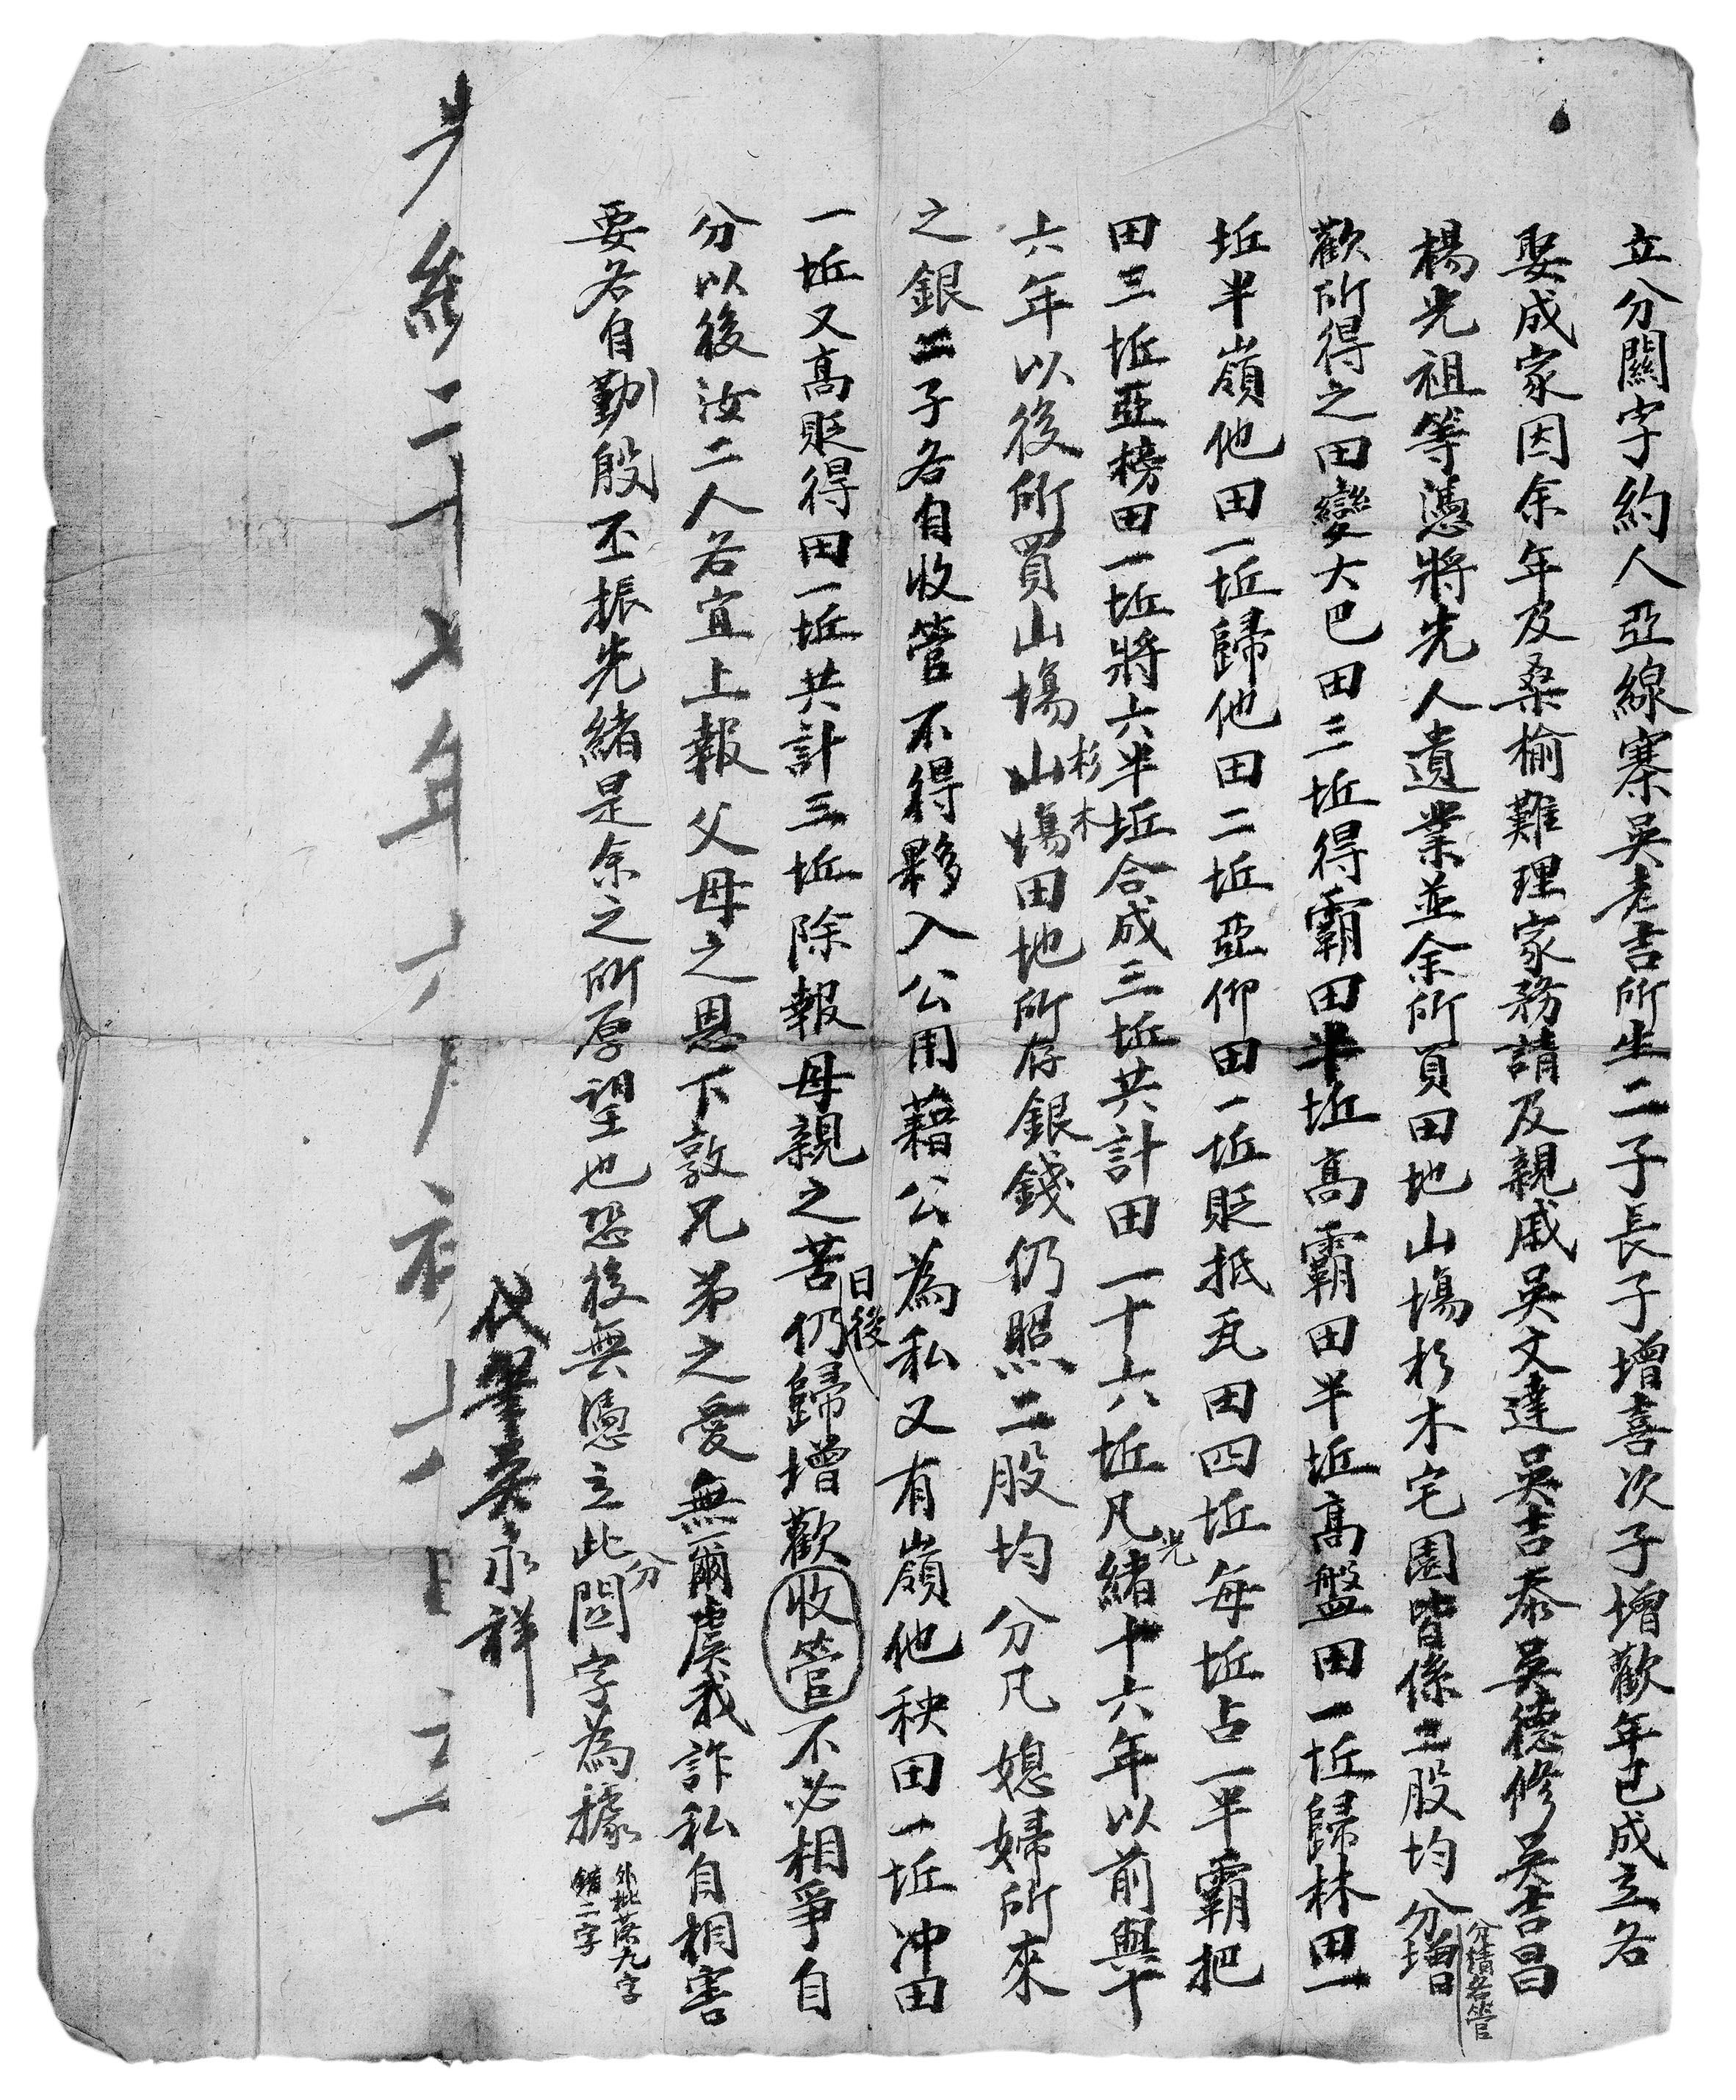 立分關字約人亞線寨吳老吉所生二子長子增喜次子增歡年已成立各
娶成家因余年及桑榆難理家務請及親戚吳文達吳吉泰吳德修吳吉昌
楊光祖等憑將先人遺業並余所買田地山塲杉木宅園皆係二股均分增
分情各管
歡所得之田變大巴田三坵得霸田半坵高霸田半坵高盤田一坵歸林田一
坵半嶺他田一坵歸他田二坵亞仰田一坵貶抵瓦田四坵每坵占一半霸把
田三坵亞榜田一坵將六半坵合成三坵共計田一十六坵凡光緒十六年以前與十
六年以後所買山塲杉木山塲田地所存銀錢仍照二股均分凡媳婦所來
之銀二子各自收管不得夥入公用藉公為私又有嶺他秧田一坵冲田
一坵又高貶得田一坵共計三坵除報母親之苦日後仍歸增歡收管不必相爭自
分以後汝二人各宜上報父母之恩下敦兄弟之愛無爾虞我詐私自相害
要各自勤殷丕振先緒是余之所厚望也恐後無憑立此分関字為據
外批落九字
錯二字
代筆吳永祥
光緒二十七年六月初六日立